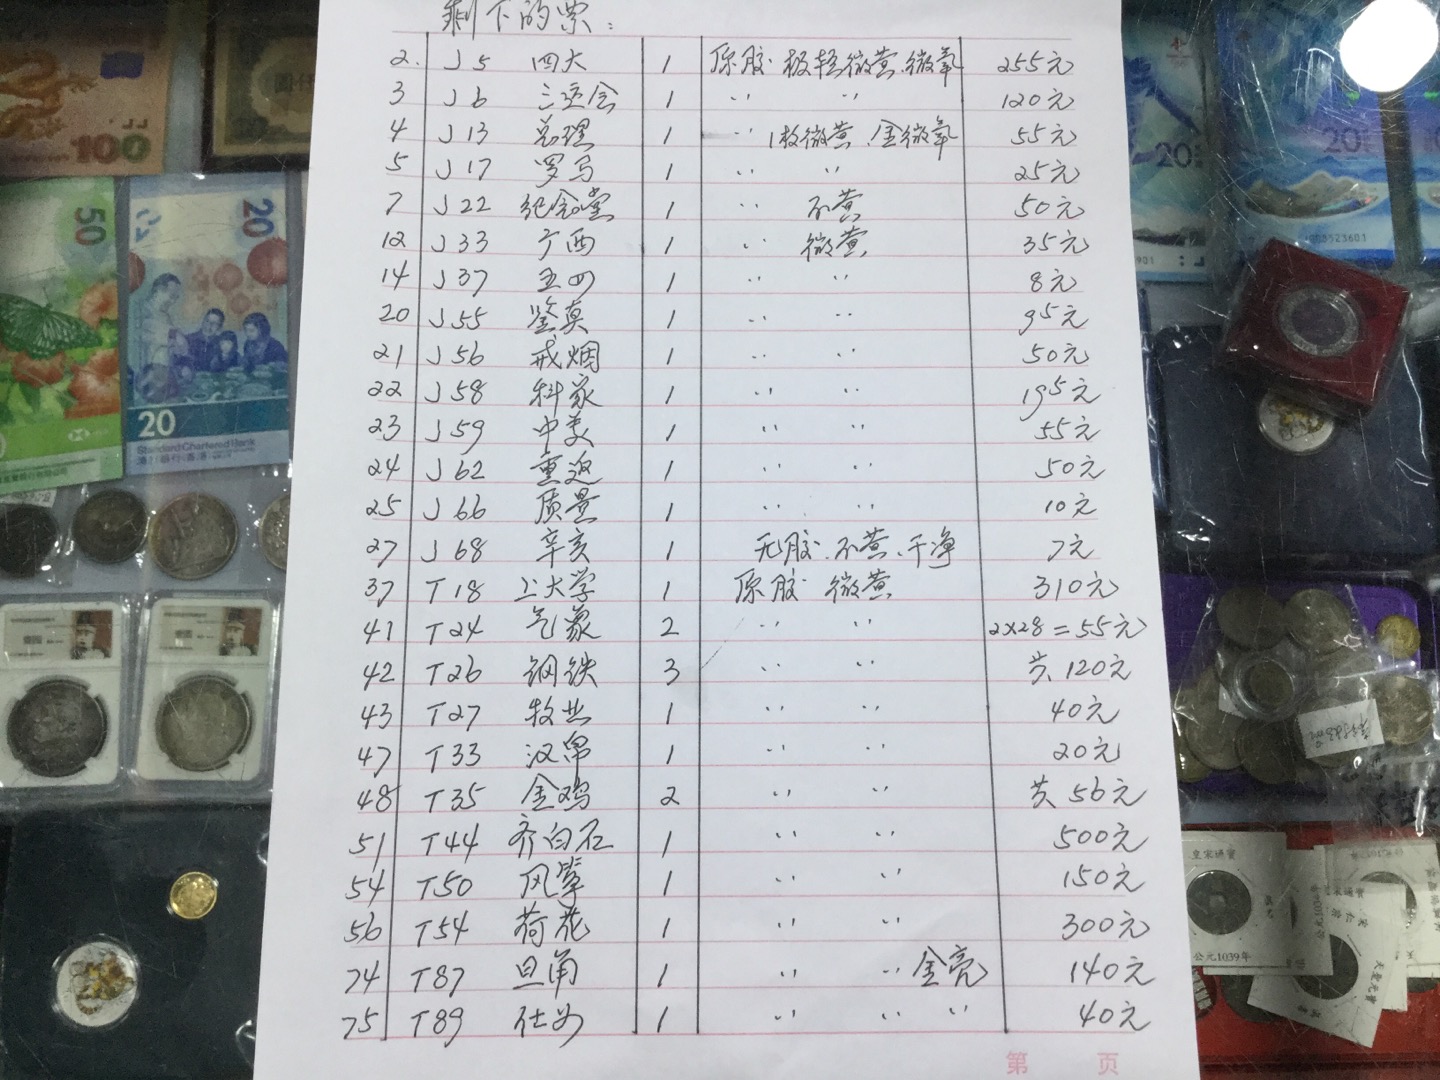 剩下的票:
2. J5 四大 1 原胶 极轻微黄 微氧 255元
3 J6 三运会 1 ·· ·· 120元
4 J13 总理 1 ·· 1枚微黄、金微氧 55元
5 J17 罗马 1 ·· ·· 25元
7 J22 纪念堂 1 ·· 不黄 50元
12 J33 广西 1 ·· 微黄 35元
14 J37 五四 1 ·· ·· 8元
20 J55 鉴真 1 ·· ·· 95元
21 J56 戒烟 1 ·· ·· 50元
22 J58 科象 1 ·· ·· 195元
23 J59 中美 1 ·· ·· 55元
24 J62 重返 1 ·· ·· 50元
25 J66 质量 1 ·· ·· 10元
27 J68 辛亥 1 无胶、不黄、干净 7元
37 T18 上大学 1 原胶 微黄 310元
41 T24 气象 2 ·· ·· 2×28=55元
42 T26 钢铁 3 ·· ·· 共120元
43 T27 牧业 1 ·· ·· 40元
47 T33 汉帛 1 ·· ·· 20元
48 T35 金鸡 2 ·· ·· 共56元
51 T44 齐白石 1 ·· ·· 500元
54 T50 风筝 1 ·· ·· 150元
56 T54 荷花 1 ·· ·· 300元
74 T87 旦角 1 ·· ·· 金亮 140元
75 T89 仕女 1 ·· ·· ·· 40元
第 页
100
50
20
20
Standard Chartered Bank
20
20
皇宋通寶
公元1039年